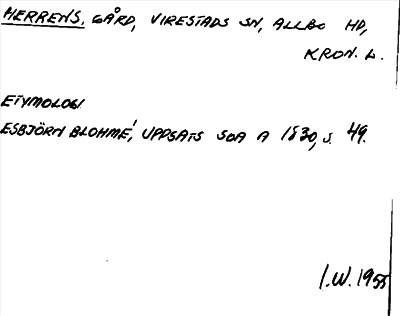 HERRENS, GÅRD, VIRESTADS SN, ALLBO HD,
KRON. L.
ETYMOLOGI
ESBJÖRN BLOHMÉ, UPPSATS SOA A 1830, S. 49.
I.W. 1955